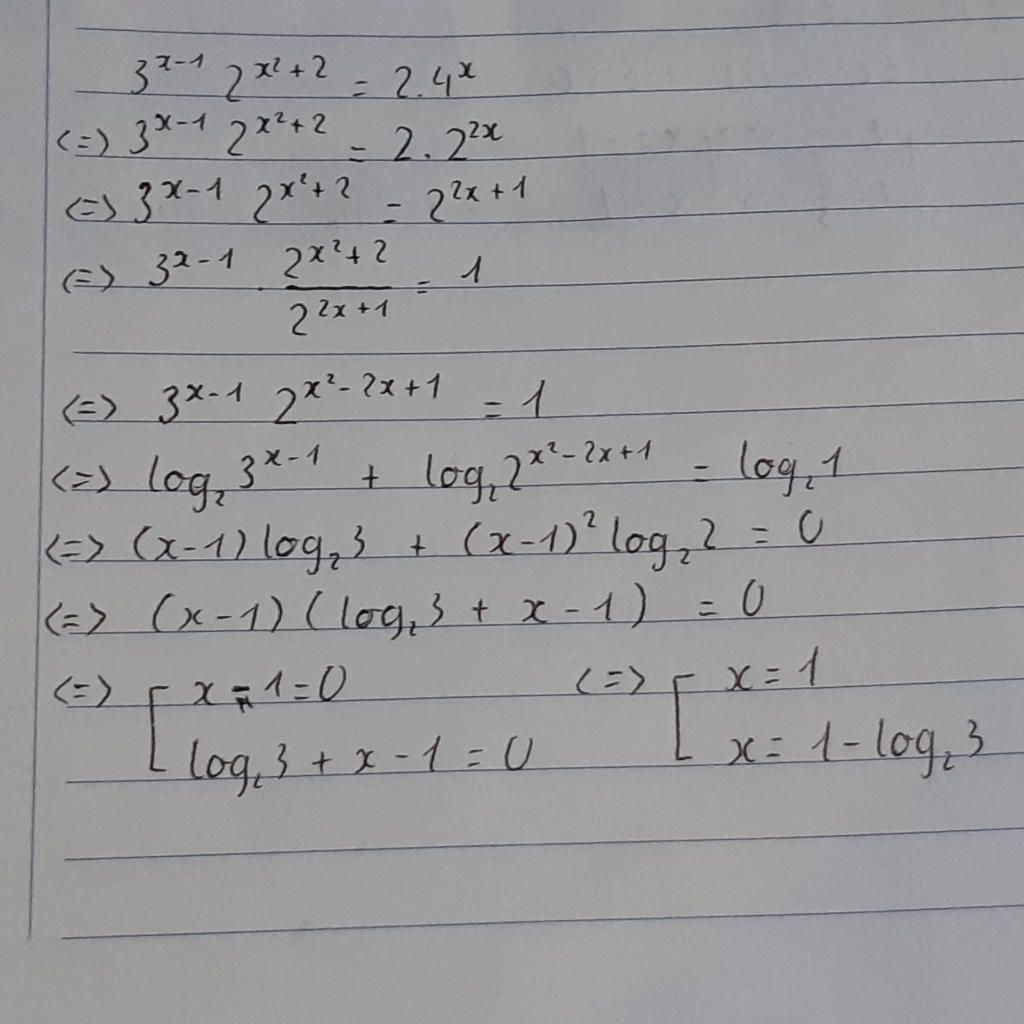 3^{x-1} 2^{x²+2} = 2.4^x
<=> 3^{x-1} 2^{x²+2} = 2.2^{2x}
<=> 3^{x-1} 2^{x²+2} = 2^{2x+1}
<=> 3^{x-1} . \frac{2^{x²+2}}{2^{2x+1}} = 1
<=> 3^{x-1} 2^{x²-2x+1} = 1
<=> log₂3^{x-1} + log₂2^{x²-2x+1} = log₂1
<=> (x-1)log₂3 + (x-1)²log₂2 = 0
<=> (x-1)(log₂3 + x-1) = 0
<=> [ x-1=0 <=> [ x=1
log₂3 + x-1 = 0 x = 1-log₂3